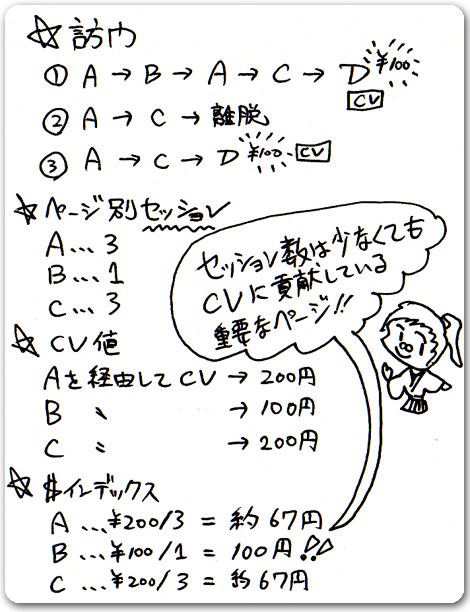 ☆訪問
① A → B → A → C → D ¥100
CV
② A → C → 離脱
③ A → C → D ¥100 CV
☆ページ別セッション
A…3
B…1
C…3
セッション数は少なくても
CVに貢献している
重要なページ!!
☆CV値
Aを経由してCV → 200円
B 〃 → 100円
C 〃 → 200円
☆$インデックス
A …¥200/3 = 約67円
B …¥100/1 = 100円!!
C …¥200/3 = 約67円